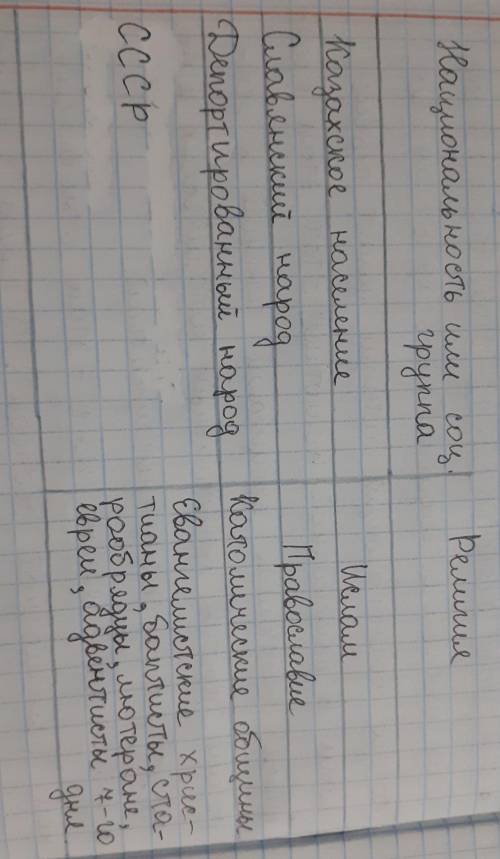 Национальность или соц. группа | Религия
Казахское население | Ислам
Славянский народ | Православие
Депортированный народ | Католические общины
СССР | Евангелистские хрис-
тианы, баптисты, ста-
рообрядцы, лютеране,
евреи, адвентисты 7-го
дня